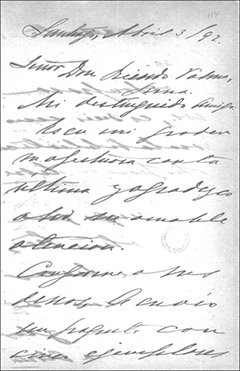 114
Santiago, Abril 3/92.
Señor Don Ricardo Palma,
Lima.
Mi distinguido amigo:
Es en mi poder
afectuosa con la
última y agradezco
a Ud su amable
atencion.
Conforme a sus
deseos, le envio
un paquete con
cinco ejemplares